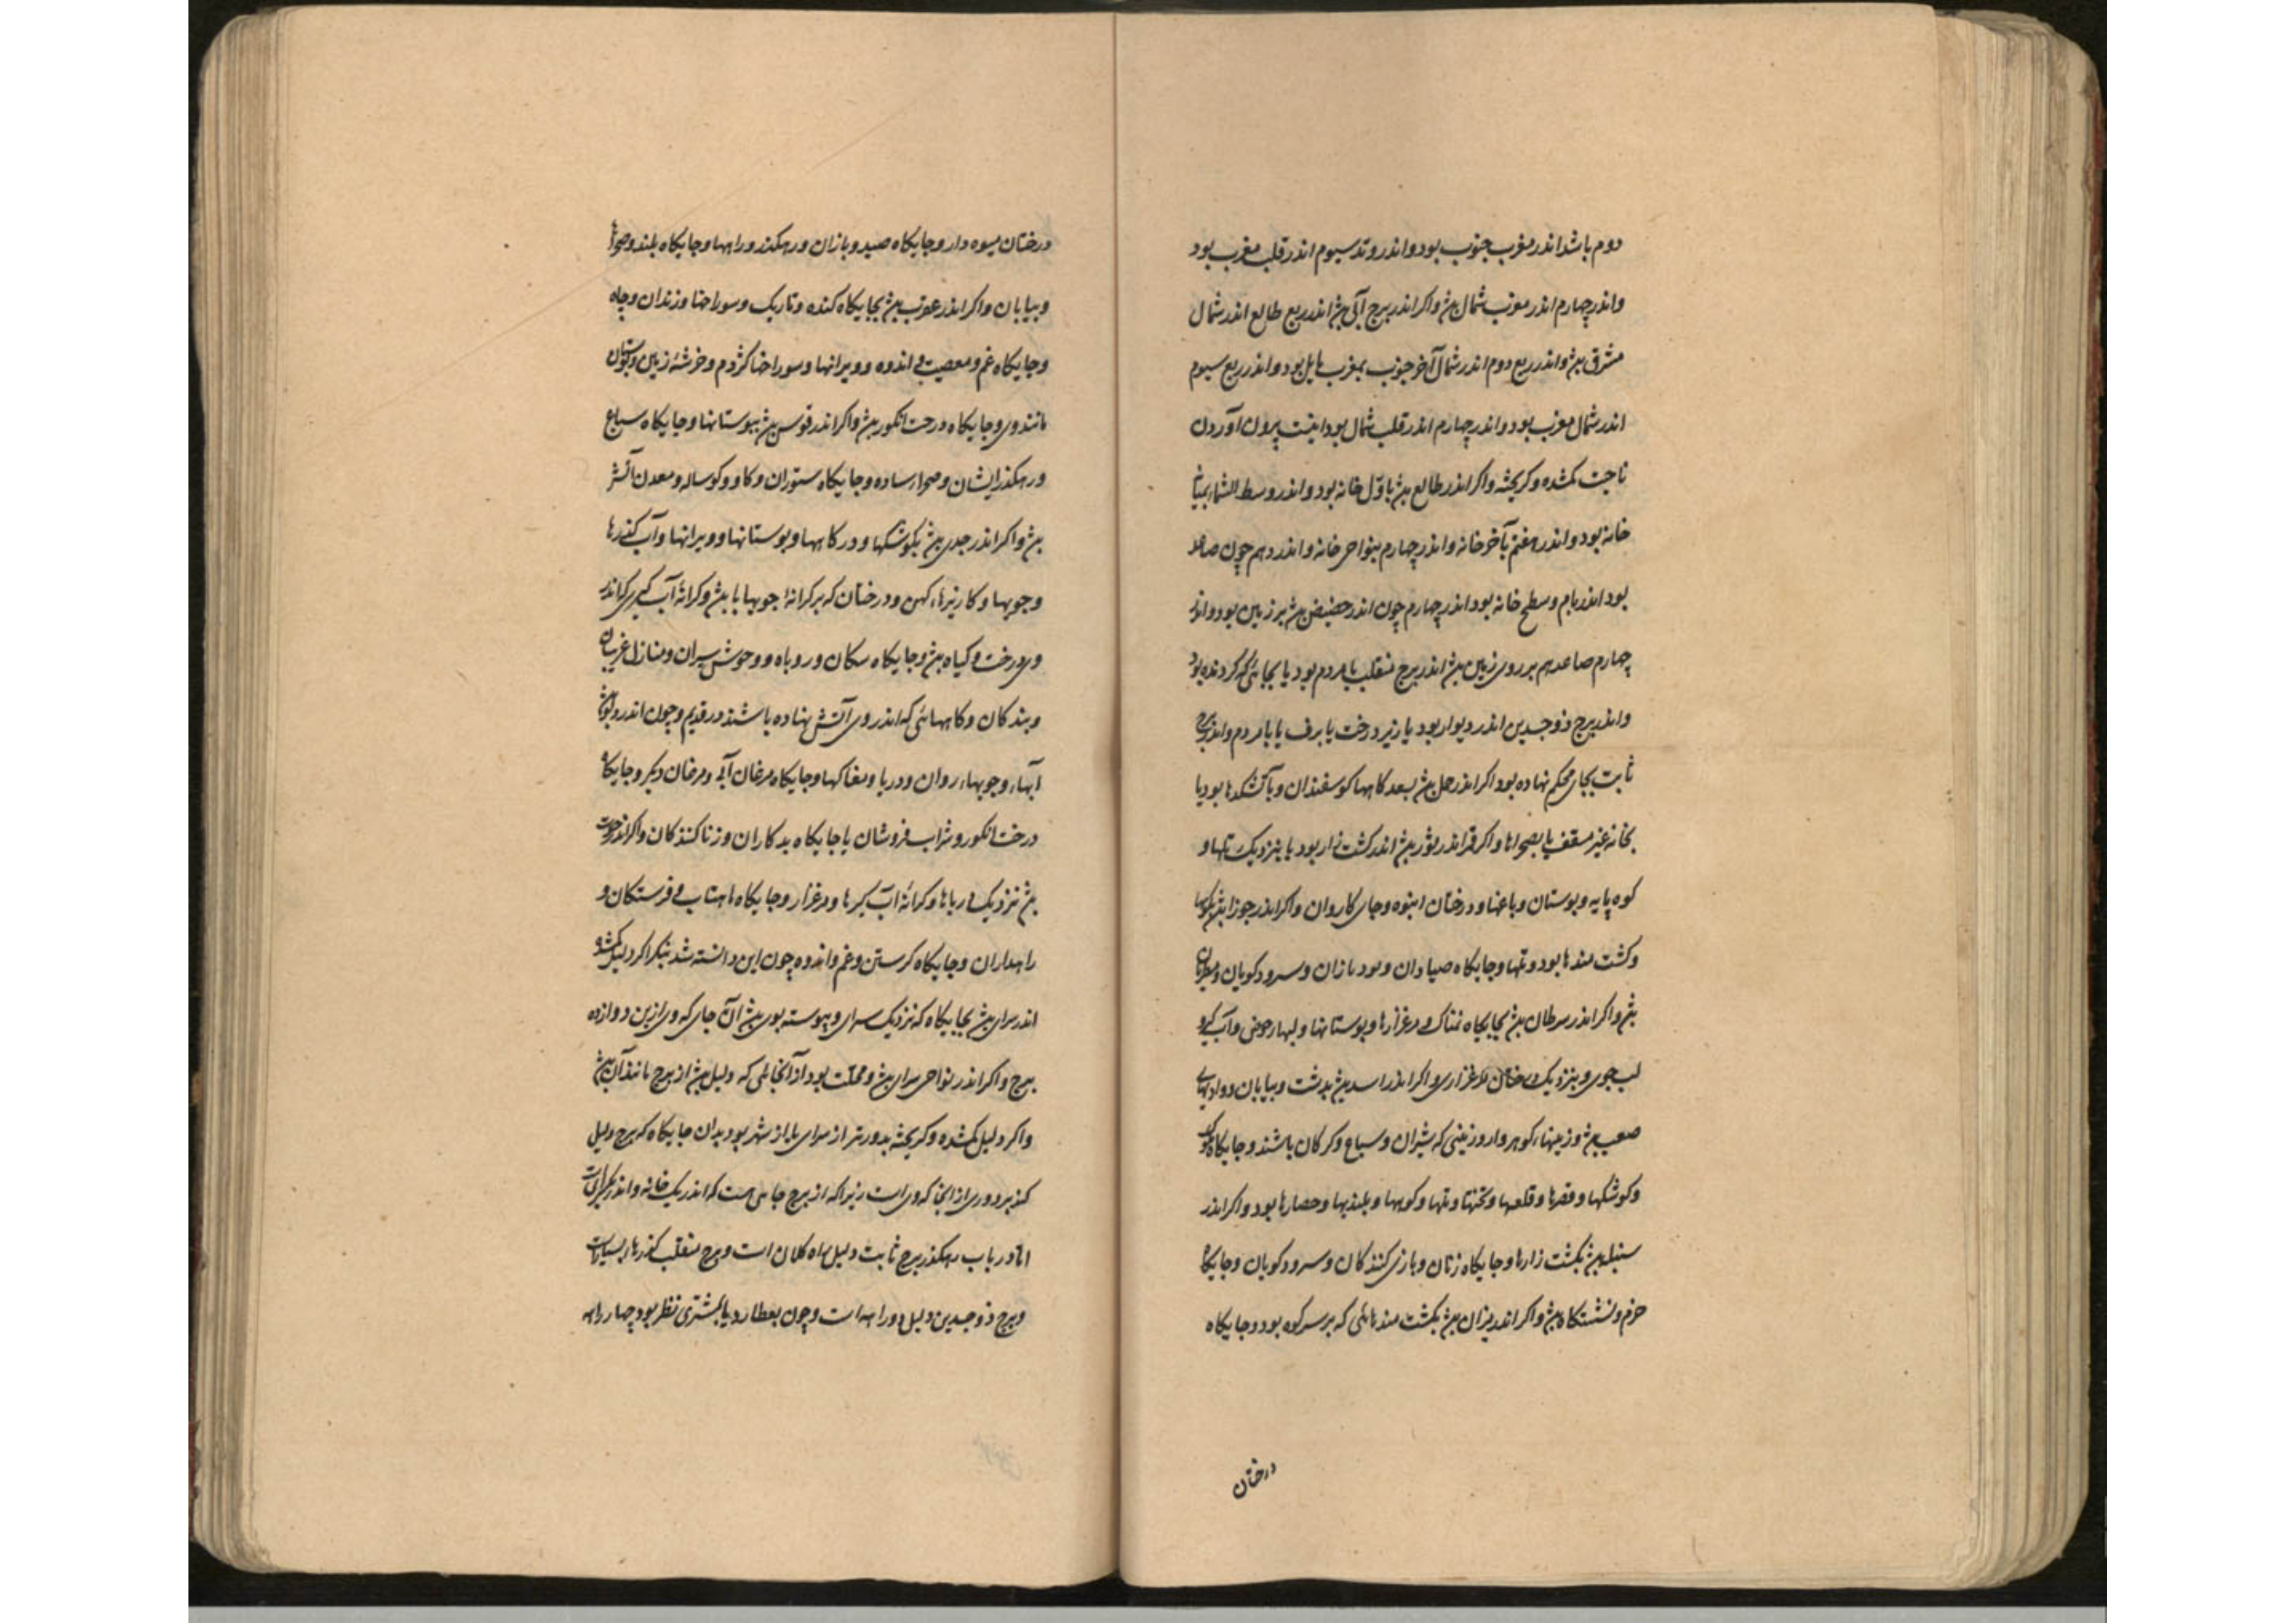 دوم باشد اندر مغرب جنوب بود و اندر وتد سیوم اندر قلب مغرب بود
و اندر چهارم اندر مغرب شمال بود و اکر اندر برج آبی بود اندر ربع طالع اندر شمال
مشرق بود و اندر ربع دوم اندر شمال آخر جنوب بمغرب مایل بود و اندر ربع سیوم
اندر شمال مغرب بود و اندر چهارم اندر قلب شمال بود اینست پرون آوردن
ناحیت کمشده و کریخته و اکر اندر طالع بود باول خانه بود و اندر وسط السماء بمیان
خانه بود و اندر هفتم بآخر خانه و اندر چهارم بنواحی خانه و اندر دهم چون صاعد
بود اندر بام و سطح خانه بود اندر چهارم چون اندر حضیض بود بر زمین بود و اندر
چهارم صاعد هم بر روی زمین بود اندر برج منقلب با مردم بود یا بجائی که کردنده بود
و اندر برج ذوجسدین اندر دیوار بود یا زیر درخت یا برف یا با مردم و اندر برج
ثابت بجای محکم نهاده بود اکر اندر حمل بود کاهها کوسفندان و بآتشکدها بود یا
بخانه غیر مسقف یا بصحراها و اکر قمر اندر ثور بود اندر کشت زار بود یا بنزدیک تلها و
کوه پایه و بوستان و باغها و درختان انبوه و جای کاروان و اکر اندر جوزا بود
و کشت مندها بود و تلها و جایکاه صیادان و رود بازان و سرود کویان و مطربان
بود و اکر اندر سرطان بود بجایکاه نمناک و مرغزارها و بوستانها و لبهاء حوض و آب کیر و
لب جوی و بنزدیک درختان مرغزاری و اکر اندر اسد بود بدشت و بیابان و وادیهای
صعب بود و زمینهاء کوهر وار و زمینی که شیران و سباع و کرکان باشند و جایکاه
و کوشکها و قصرها و قلعها و تختها و تلها و کوهها و بلندیها و حصارها بود و اکر اندر
سنبله بود بکشت زارها و جایکاه زنان و بازی کنندکان و سرود کویان و جایکاه
خرم و نشستکاه بود و اکر اندر میزان بود بکشت مندهائی که بر سر کوه بود و جایکاه
درختان
درختان میوه دار و جایکاه صید و بازان و رهکذر و راهها و جایکاه بلند و صحرا
و بیابان و اکر اندر عقرب بود بجایکاه کنده و تاریک و سوراخها و زندان و چاه
و جایکاه غم و معصیت و اندوه و ویرانها و سوراخهاء کژدم و خرشته زمین و بوستان
مانند وی و جایکاه درخت انکور بود و اکر اندر قوس بود ببوستانها و جایکاه سباع
و رهکذر ایشان و صحراء ساده و جایکاه ستوران و کاو و کوساله و معدن آتش
بود و اکر اندر جدی بود بکوشکها و درکاهها و بوستانها و ویرانها و آب کندرها
و جویها و کاریزهاء کهن و درختان که بر کرانه جویها بود و کرانه آب کیری که اندر
وی درخت و کیاه بود و جایکاه سکان و روباه و وحوش سیران و منازل غریبان
و بندکان و کاههائی که اندر وی آتش نهاده باشند در قدیم و چون اندر دلو بود
آبهاء و جویهاء روان و دریا و مغاکها و جایکاه مرغان آبی و مرغان دیکر و جایکاه
درخت انکور و شراب فروشان یا جایکاه بدکاران و زنا کنندکان و اکر اندر حوت
بود نزدیک دریاها و کرانه آب کیرها و مرغزار و جایکاه ماهتاب و فرستکان و
راهداران و جایکاه کرستن و غم و اندوه چون این دانسته شد بنکر اکر دلیل کمشده
اندر سرای بود بجایکاه که نزدیک سرای و پیوسته بوی بود آن جای که وی از این دوازده
برج و اکر اندر نواحی سرای بود و محلت بود از آنجایی که دلیل بود از برج مانند آن بود
و اکر دلیل کمشده و کریخته بدورتر از سرای یا از شهر بود بدان جایکاه که برج دلیل
کند بر دوری از آنجا که وی است زیراکه از برج جایی هست که اندر یک خانه و اندر یک سرای است
اما در باب رهکذر برج ثابت دلیل راه کلان است و برج منقلب کذرهاء بسیار است
و برج ذوجسدین دلیل دو راهه است و چون بعطارد یا بمشتری نظر بود چهار راهه